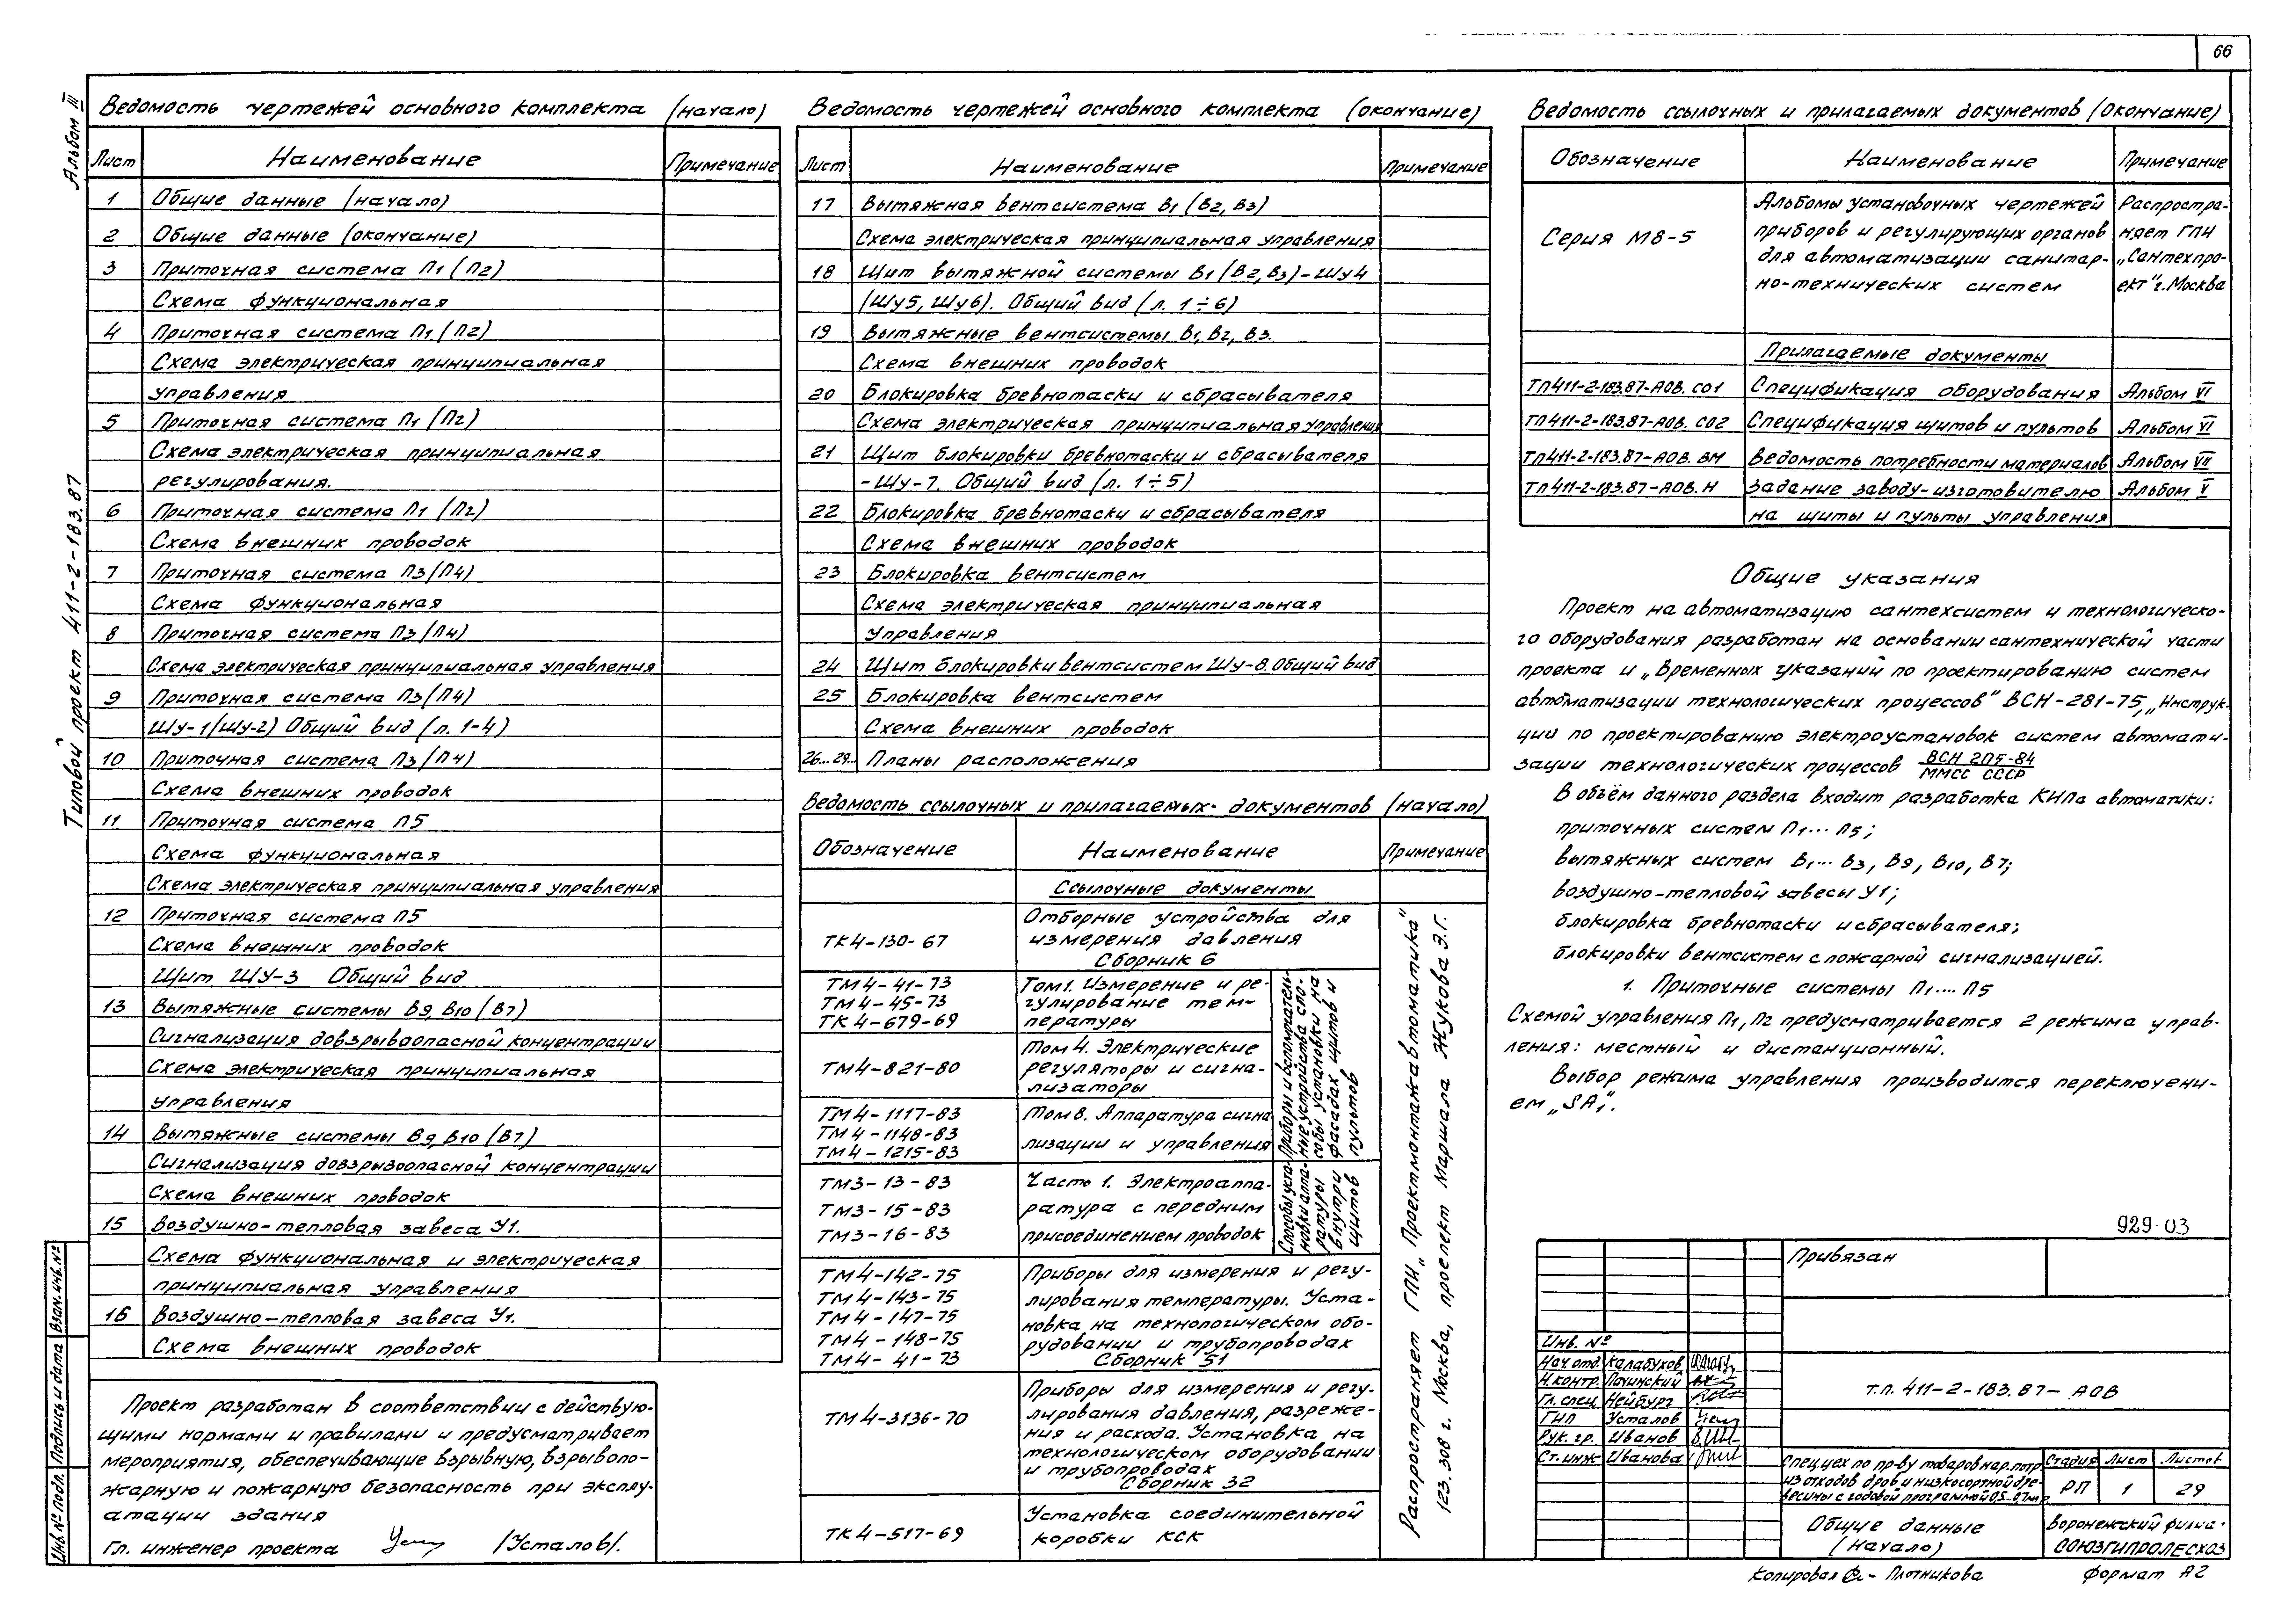 66
Альбом III
Типовой проект 411-2-183.87
Ведомость чертежей основного комплекта (начало)
Лист Наименование Примечание
1 Общие данные (начало)
2 Общие данные (окончание)
3 Приточная система П1 (П2)
Схема функциональная
4 Приточная система П1 (П2)
Схема электрическая принципиальная
управления
5 Приточная система П1 (П2)
Схема электрическая принципиальная
регулирования.
6 Приточная система П1 (П2)
Схема внешних проводок
7 Приточная система П3 (П4)
Схема функциональная
8 Приточная система П3 (П4)
Схема электрическая принципиальная управления
9 Приточная система П3 (П4)
ШУ-1 (ШУ-2) Общий вид (л. 1-4)
10 Приточная система П3 (П4)
Схема внешних проводок
11 Приточная система П5
Схема функциональная
Схема электрическая принципиальная управления
12 Приточная система П5
Схема внешних проводок
Щит ШУ-3 Общий вид
13 Вытяжные системы В9, В10 (В7)
Сигнализация довзрывоопасной концентрации
Схема электрическая принципиальная
управления
14 Вытяжные системы В9, В10 (В7)
Сигнализация довзрывоопасной концентрации
Схема внешних проводок
15 Воздушно-тепловая завеса У1.
Схема функциональная и электрическая
принципиальная управления
16 Воздушно-тепловая завеса У1.
Схема внешних проводок
Проект разработан в соответствии с действую-
щими нормами и правилами и предусматривает
мероприятия, обеспечивающие взрывную, взрывопо-
жарную и пожарную безопасность при эксплу-
атации здания
Гл. инженер проекта /Усталов/.
Взам. инв. №
Подпись и дата
Инв. № подл.
Ведомость чертежей основного комплекта (окончание)
Лист Наименование Примечание
17 Вытяжная вентсистема В1 (В2, В3)
Схема электрическая принципиальная управления
18 Щит вытяжной системы В1 (В2, В3) - ШУ4
(ШУ5, ШУ6). Общий вид (л. 1÷6)
19 Вытяжные вентсистемы В1, В2, В3.
Схема внешних проводок
20 Блокировка бревнотаски и сбрасывателя
Схема электрическая принципиальная управления
21 Щит блокировки бревнотаски и сбрасывателя
- ШУ-7. Общий вид (л. 1÷5)
22 Блокировка бревнотаски и сбрасывателя
Схема внешних проводок
23 Блокировка вентсистем
Схема электрическая принципиальная
управления
24 Щит блокировки вентсистем ШУ-8. Общий вид
25 Блокировка вентсистем
Схема внешних проводок
26...29.. Планы расположения
Ведомость ссылочных и прилагаемых документов (начало)
Обозначение Наименование Примечание
Ссылочные документы
ТК4-130-67 Отборные устройства для
измерения давления
Сборник 6
ТМ4-41-73 Том 1. Измерение и ре-
ТМ4-45-73 гулирование тем-
ТК4-679-69 пературы
ТМ4-821-80 Том 4. Электрические
регуляторы и сигна-
лизаторы
ТМ4-1117-83 Том 8. Аппаратура сигна
ТМ4-1148-83 лизации и управления
ТМ4-1215-83
Приборы и вспомогатель-
ные устройства спо-
собы установки на
фасадах щитов и
пультов
ТМ3-13-83 Часть 1. Электроаппа-
ТМ3-15-83 ратура с передним
ТМ3-16-83 присоединением проводок
Способы уста-
новки аппа-
ратуры
внутри
щитов
ТМ4-142-75 Приборы для измерения и регу-
ТМ4-143-75 лирования температуры. Уста-
ТМ4-147-75 новка на технологическом обо-
ТМ4-148-75 рудовании и трубопроводах
ТМ4-41-73 Сборник 51
ТМ4-3136-70 Приборы для измерения и регу-
лирования давления, разреже-
ния и расхода. Установка на
технологическом оборудовании
и трубопроводах
Сборник 32
ТК4-517-69 Установка соединительной
коробки КСК
Распространяет ГПИ „Проектмонтажавтоматика"
123.308 г. Москва, проспект Маршала Жукова Э.Г.
Ведомость ссылочных и прилагаемых документов (окончание)
Обозначение Наименование Примечание
Серия М8-5 Альбомы установочных чертежей Распростра-
приборов и регулирующих органов няет ГПИ
для автоматизации санитар- „Сантехпро-
но-технических систем ект" г. Москва
Прилагаемые документы
ТП411-2-183.87-АОВ.СО1 Спецификация оборудования Альбом VI
ТП411-2-183.87-АОВ.СО2 Спецификация щитов и пультов Альбом VI
ТП411-2-183.87-АОВ.ВМ Ведомость потребности материалов Альбом VII
ТП411-2-183.87-АОВ.Н Задание заводу-изготовителю Альбом V
на щиты и пульты управления
Общие указания
Проект на автоматизацию сантехсистем и технологическо-
го оборудования разработан на основании сантехнической части
проекта и „Временных указаний по проектированию систем
автоматизации технологических процессов" ВСН-281-75, „Инструк-
ции по проектированию электроустановок систем автомати-
зации технологических процессов ВСН 205-84
ММСС СССР
В объём данного раздела входит разработка КИПа автоматики:
приточных систем П1... П5;
вытяжных систем В1... В3, В9, В10, В7;
воздушно-тепловой завесы У1;
блокировка бревнотаски и сбрасывателя;
блокировки вентсистем с пожарной сигнализацией.
1. Приточные системы П1.... П5
Схемой управления П1, П2 предусматривается 2 режима управ-
ления: местный и дистанционный.
Выбор режима управления производится переключени-
ем „SA1".
929-03
Привязан
Инв. №
Нач. отд. Калабухов
Н. контр. Починский
Гл. спец. Нейбург
ГИП Усталов
Рук. гр. Иванов
Ст. инж Иванова
т.п. 411-2-183.87- АОВ
Спец. цех по пр-ву товаров нар. потр.
из отходов дров и низкосортной дре-
весины с годовой программой 0,5-0,7 млн
Стадия Лист Листов
РП 1 29
Общие данные
(начало)
Воронежский филиа-
СОЮЗГИПРОЛЕСХОЗ
Копировал Плотникова
Формат А2